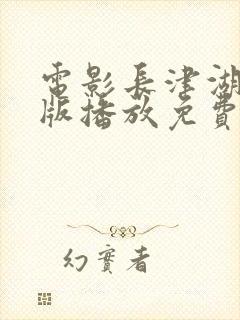 電影長津湖
版播放免費
幻實者